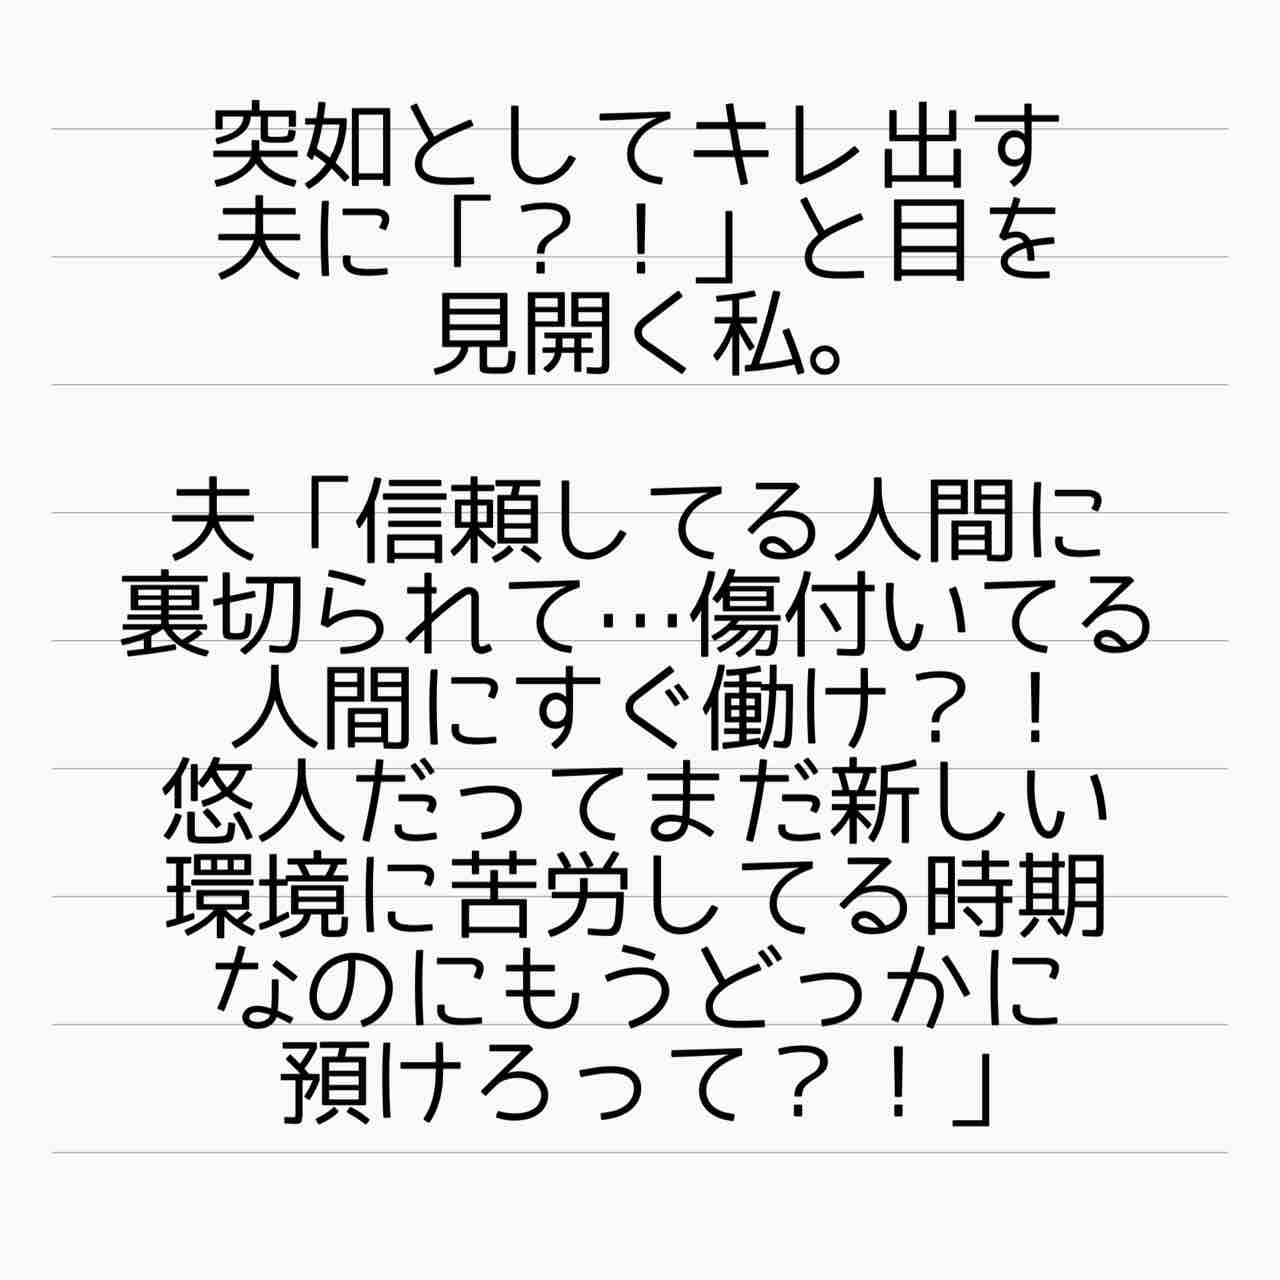 突如としてキレ出す
夫に「？！」と目を
見開く私。
夫「信頼してる人間に
裏切られて…傷付いてる
人間にすぐ働け？！
悠人だってまだ新しい
環境に苦労してる時期
なのにもうどっかに
預けろって？！」